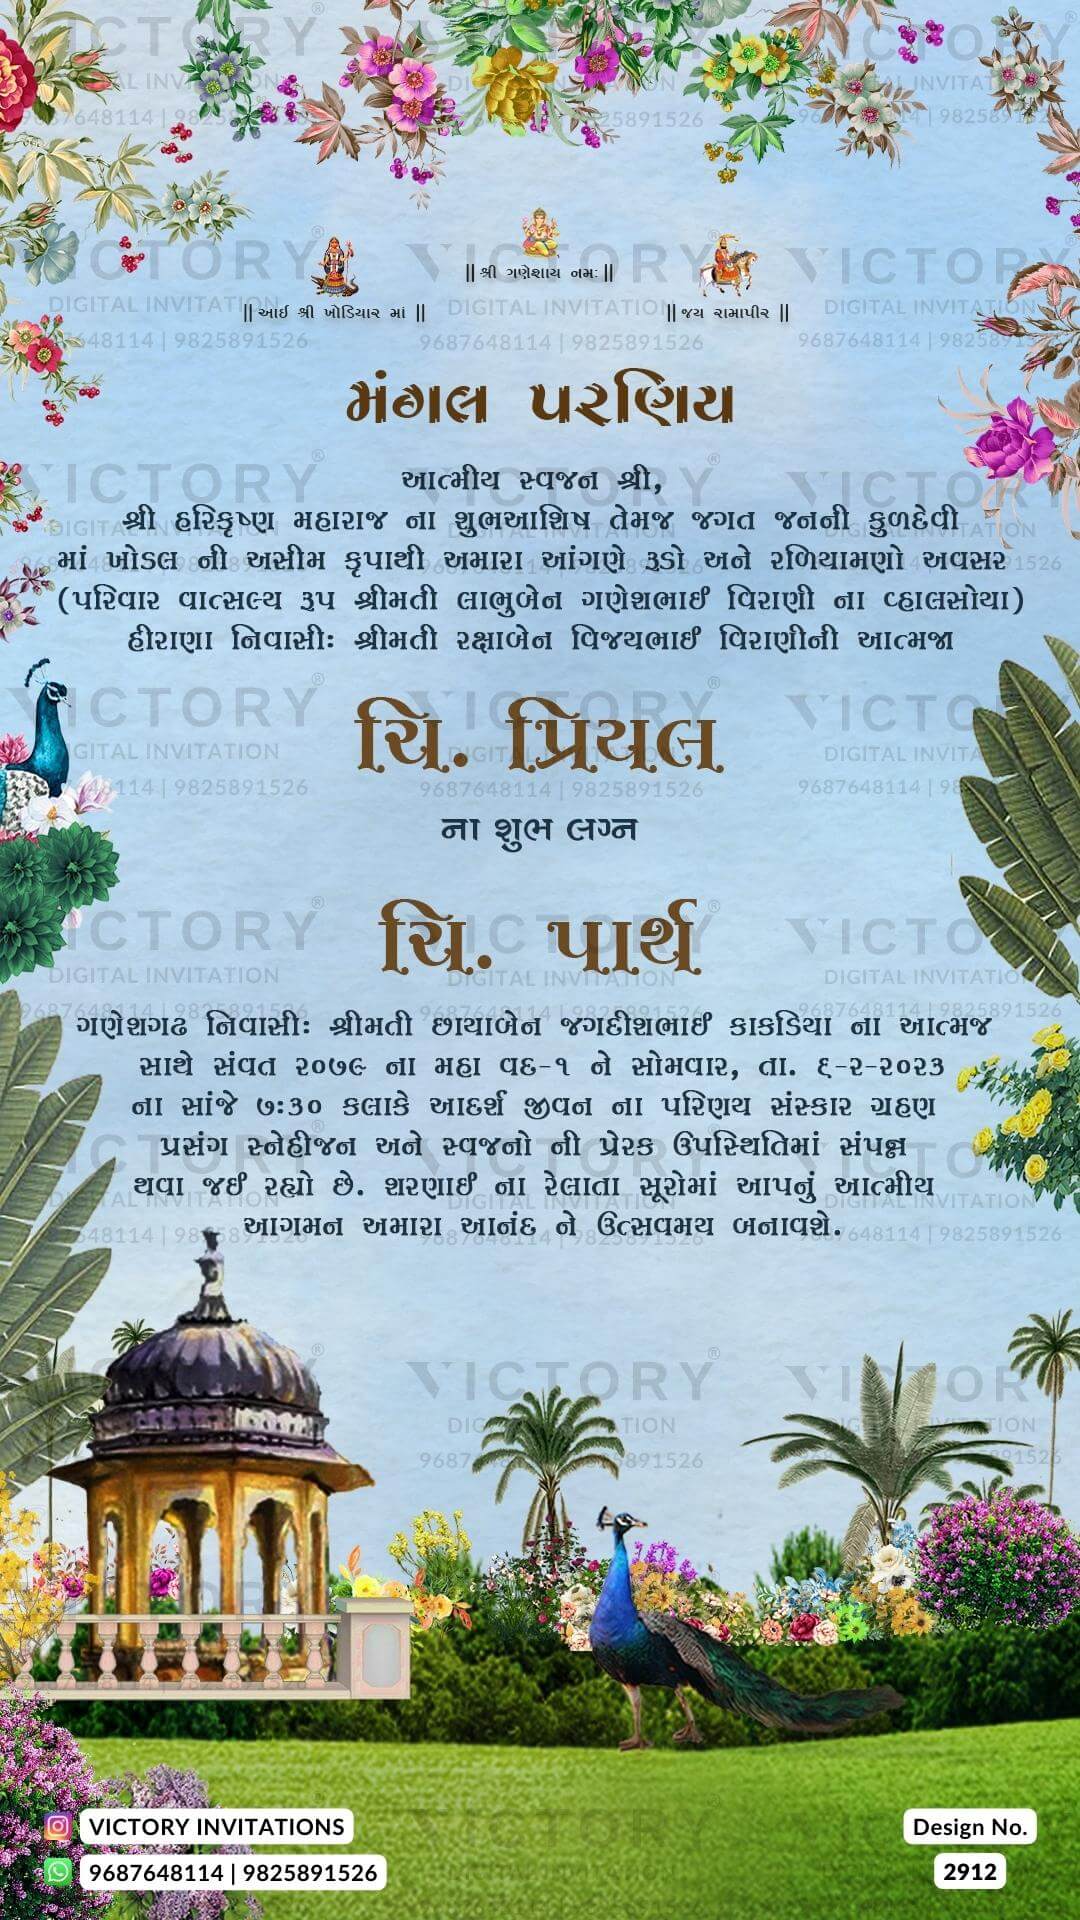 || શ્રી ગણેશાય નમઃ ||
|| આઈ શ્રી ખોડિયાર માં ||
|| જય રામાપીર ||
મંગલ પરણિય
આત્મીય સ્વજન શ્રી,
શ્રી હરિકૃષ્ણ મહારાજ ના શુભઆશિષ તેમજ જગત જનની કુળદેવી
માં ખોડલ ની અસીમ કૃપાથી અમારા આંગણે રૂડો અને રળિયામણો અવસર
(પરિવાર વાત્સલ્ય રૂપ શ્રીમતી લાભુબેન ગણેશભાઈ વિરાણી ના વ્હાલસોયા)
હીરાણા નિવાસીઃ શ્રીમતી રક્ષાબેન વિજયભાઈ વિરાણીની આત્મજા
ચિ. પ્રિયલ
ના શુભ લગ્ન
ચિ. પાર્થ
ગણેશગઢ નિવાસીઃ શ્રીમતી છાયાબેન જગદીશભાઈ કાકડિયા ના આત્મજ
સાથે સંવત ૨૦૭૯ ના મહા વદ-૧ ને સોમવાર, તા. ૬-૨-૨૦૨૩
ના સાંજે ૭:૩૦ કલાકે આદર્શ જીવન ના પરિણય સંસ્કાર ગ્રહણ
પ્રસંગ સ્નેહીજન અને સ્વજનો ની પ્રેરક ઉપસ્થિતિમાં સંપન્ન
થવા જઈ રહ્યો છે. શરણાઈ ના રેલાતા સૂરોમાં આપનું આત્મીય
આગમન અમારા આનંદ ને ઉત્સવમય બનાવશે.
VICTORY®
DIGITAL INVITATION
9687648114 | 9825891526
VICTORY INVITATIONS
9687648114 | 9825891526
Design No.
2912